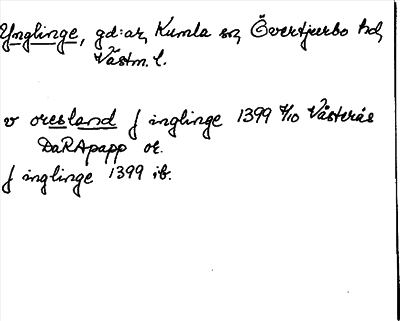 Ynglinge, gd:ar, Kumla sn, Övertjurbo hd,
Västm. l.
v oresland j inglinge 1399 4/10 Västerås
DaRApapp or.
j inglinge 1399 ib.